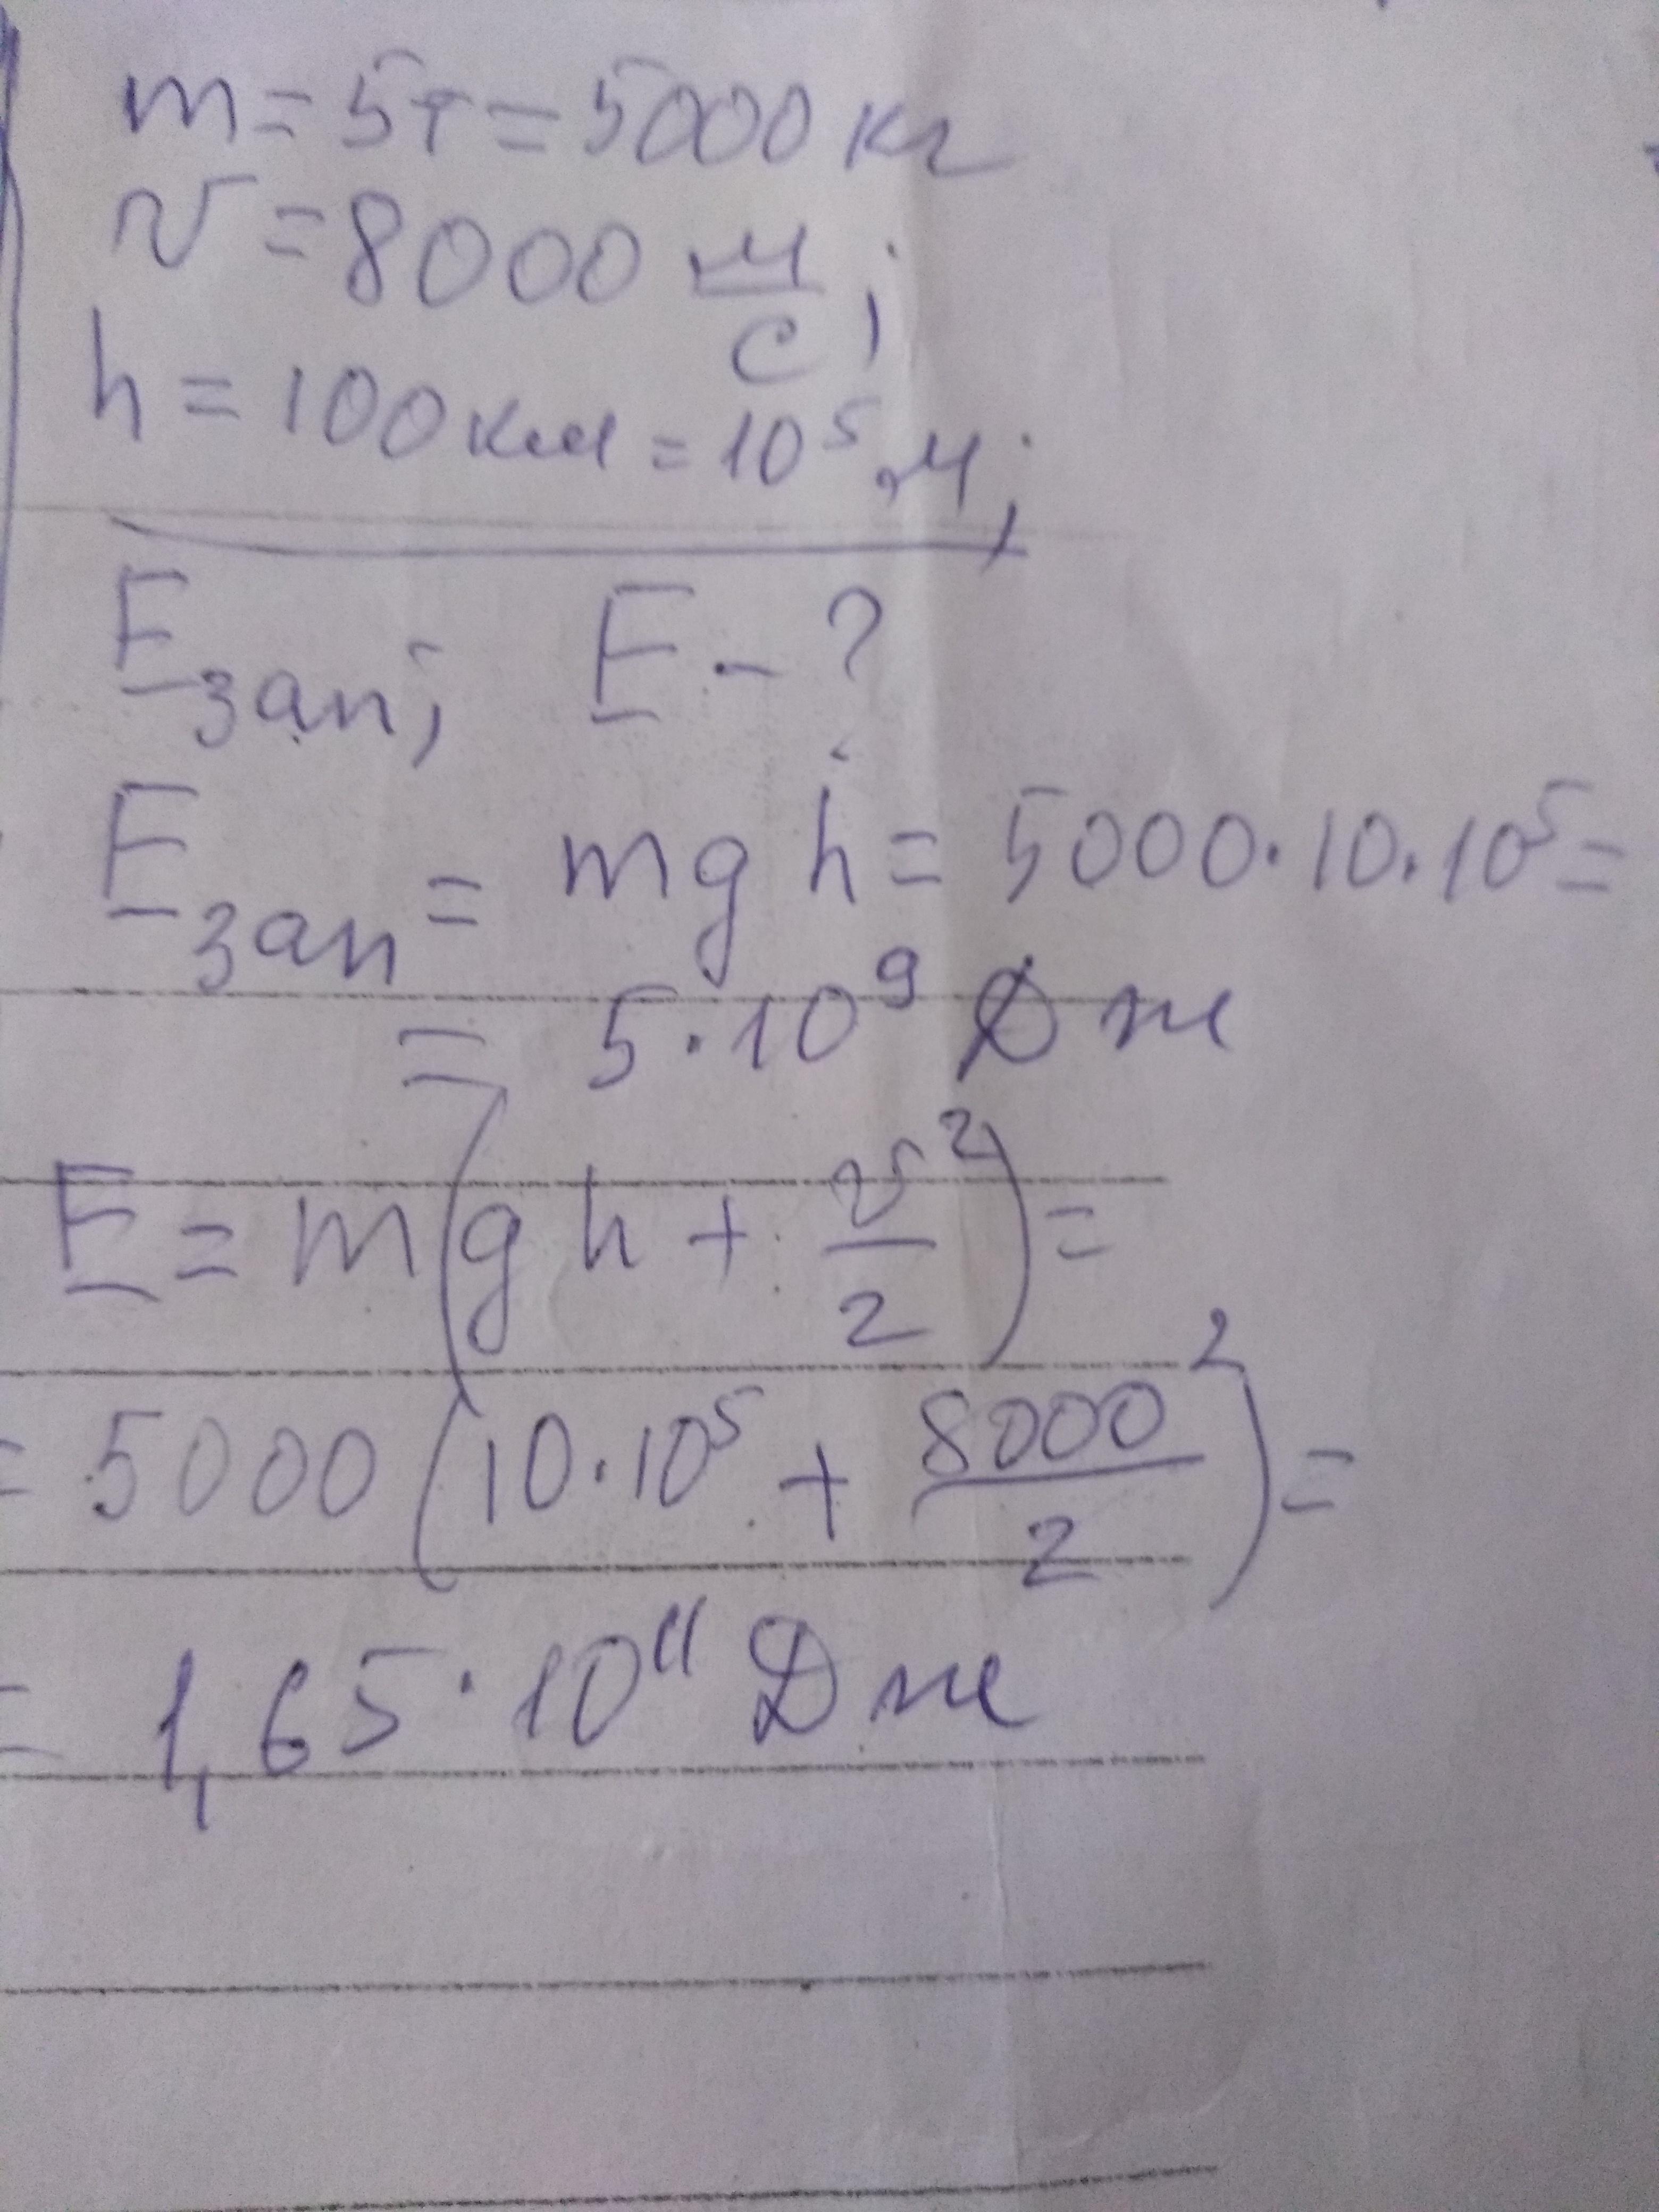 m = 5т = 5000 кг
v = 8000 м/с;
h = 100 км = 10⁵ м;
Eзап; E - ?
Eзап = mgh = 5000·10·10⁵ =
= 5·10⁹ Дж
E = m(gh + v²/2) =
= 5000(10·10⁵ + 8000²/2) =
= 1,65·10¹¹ Дж